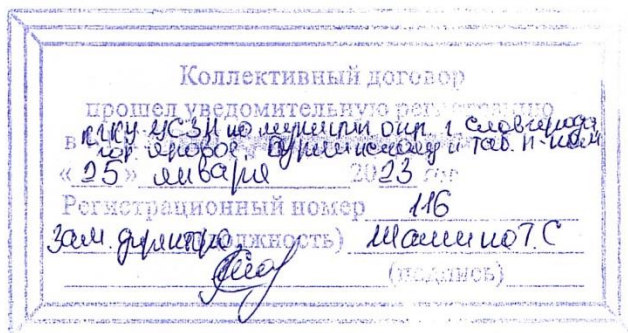 Коллективный договор
прошел уведомительную регистрацию
в КГКУ УСЗН по муницип. окр. г. Славгород,
гор. Яровое, Бурлинскому и Таб. р-нам
«25» января 2023 год
Регистрационный номер 116
Зам. директора (должность) Шашило Т.С
(подпись)